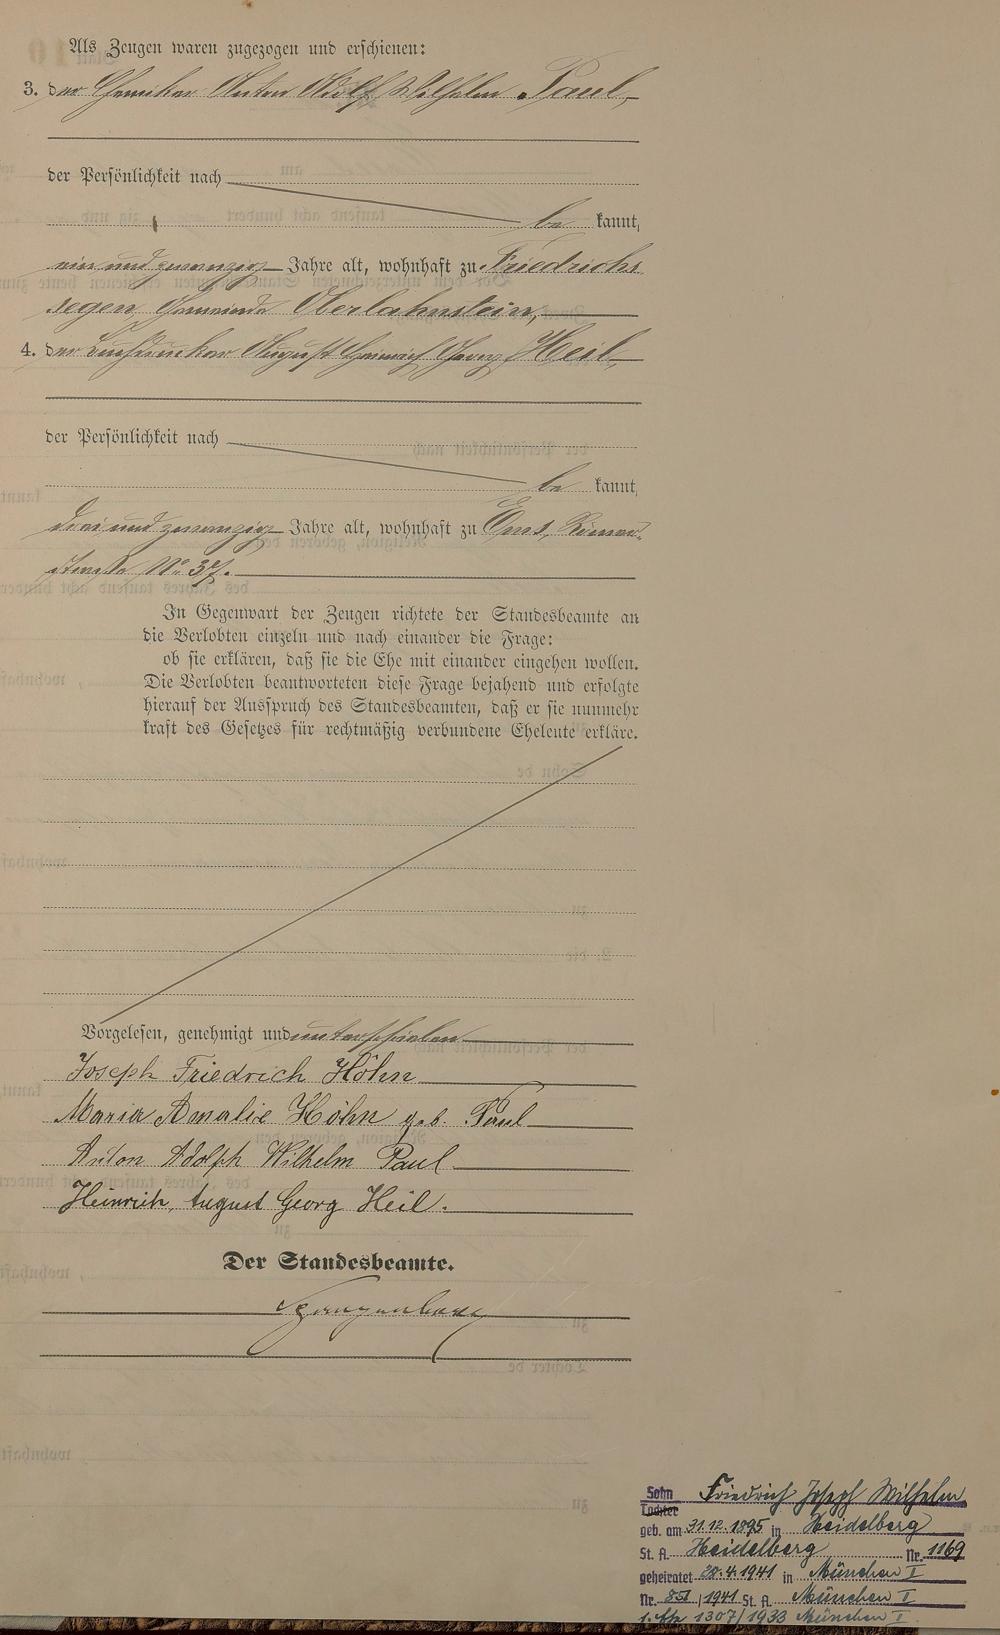 Als Zeugen waren zugezogen und erschienen:
3. der Chemiker Anton Adolf Wilhelm Paul,
der Persönlichkeit nach
be kannt,
ein und zwanzig Jahre alt, wohnhaft zu Friedrichs
segen, Gemeinde Oberlahnstein,
4. der Buchdrucker August Heinrich Georg Heil,
der Persönlichkeit nach
be kannt,
drei und zwanzig Jahre alt, wohnhaft zu Ems, Römer-
straße No 37.
In Gegenwart der Zeugen richtete der Standesbeamte an
die Verlobten einzeln und nach einander die Frage:
ob sie erklären, daß sie die Ehe mit einander eingehen wollen.
Die Verlobten beantworteten diese Frage bejahend und erfolgte
hierauf der Ausspruch des Standesbeamten, daß er sie nunmehr
kraft des Gesetzes für rechtmäßig verbundene Eheleute erkläre.
Vorgelesen, genehmigt und unterschrieben
Joseph Friedrich Höhn
Maria Amalie Höhn geb. Paul
Anton Adolph Wilhelm Paul
Heinrich August Georg Heil.
Der Standesbeamte.
Spangenberg
Sohn Friedrich Joseph Wilhelm
Tochter
geb. am 31.12.1895 in Heidelberg
St. A. Heidelberg Nr. 1169
geheiratet 28.4.1941 in München I
Nr. 851 / 1941 St. A. München I
1. Ehe 1307/1933 München I